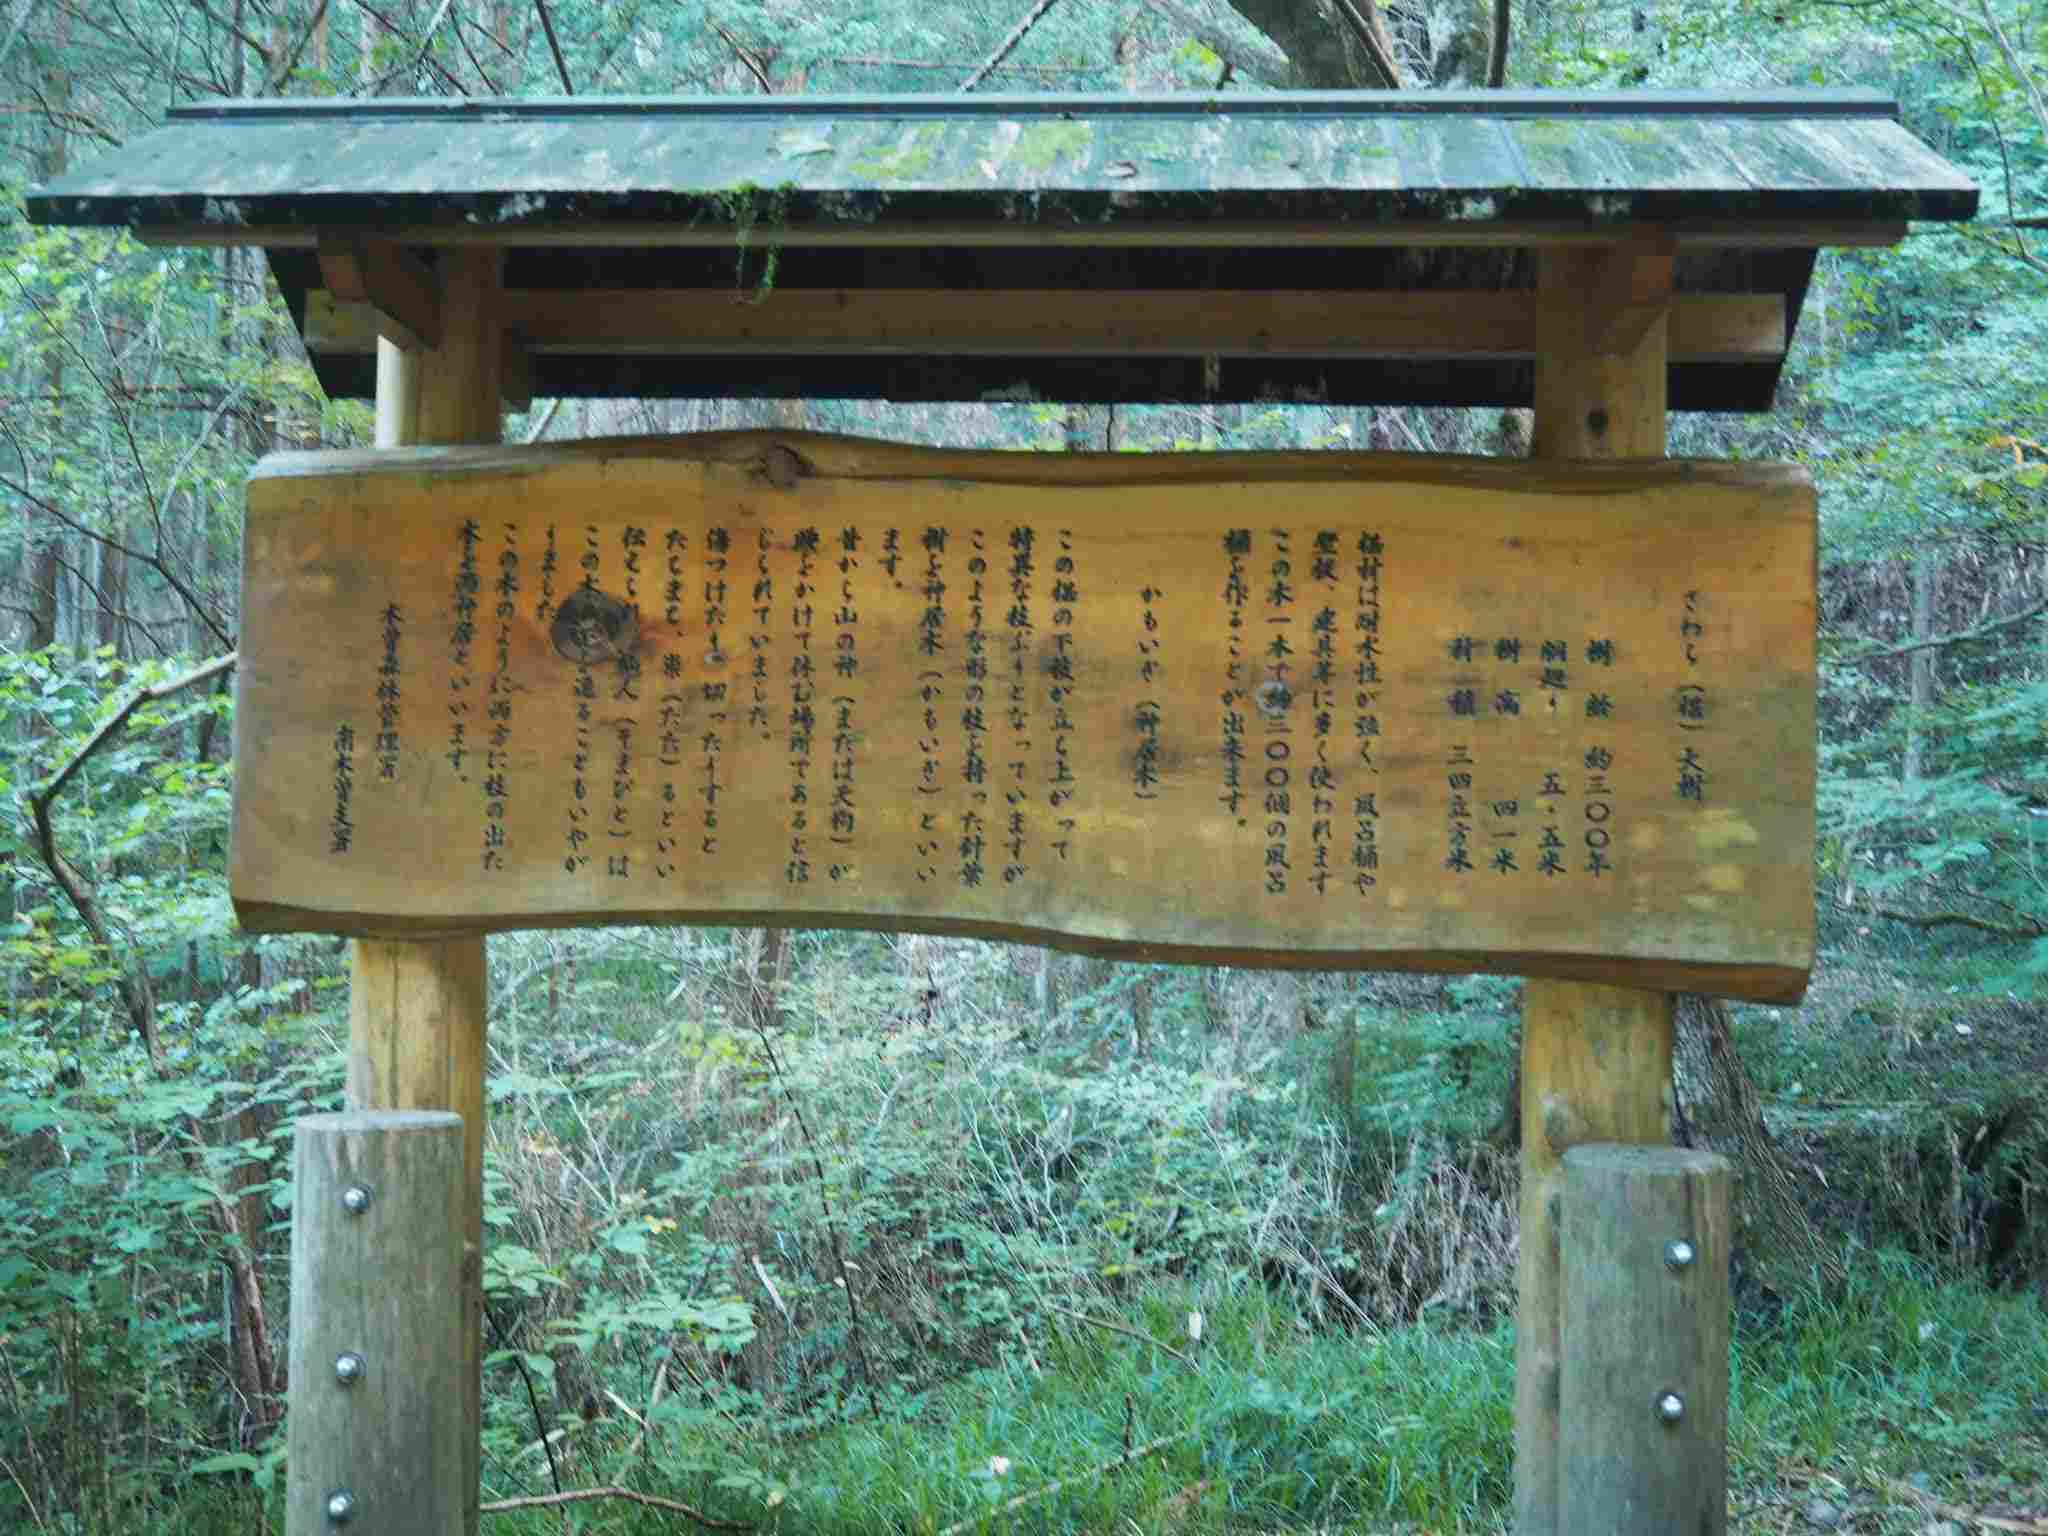 さわら(椹)大樹
樹齢 約三〇〇年
胴廻り 五・五米
樹高 四一米
材積 三四立方米
椹材は耐水性が強く、風呂桶や
壁板、建具等に多く使われます
この木一本で約三〇〇個の風呂
桶を作ることが出来ます。
かもいぎ(神居木)
この椹の下枝が立ち上がって
特異な枝ぶりとなっていますが
このような形の枝を持った針葉
樹を神居木(かもいぎ)といい
ます。
昔から山の神(または天狗)が
腰をかけて休む場所であると信
じられていました。
傷つけたり、切ったりすると
たちまち、祟(たた)るといい
伝えられ、杣人(そまびと)は
この木の を通ることもいやが
りました。
この木のように両方に枝の出た
木を両神居といいます。
木曽森林管理署
南木曽支署